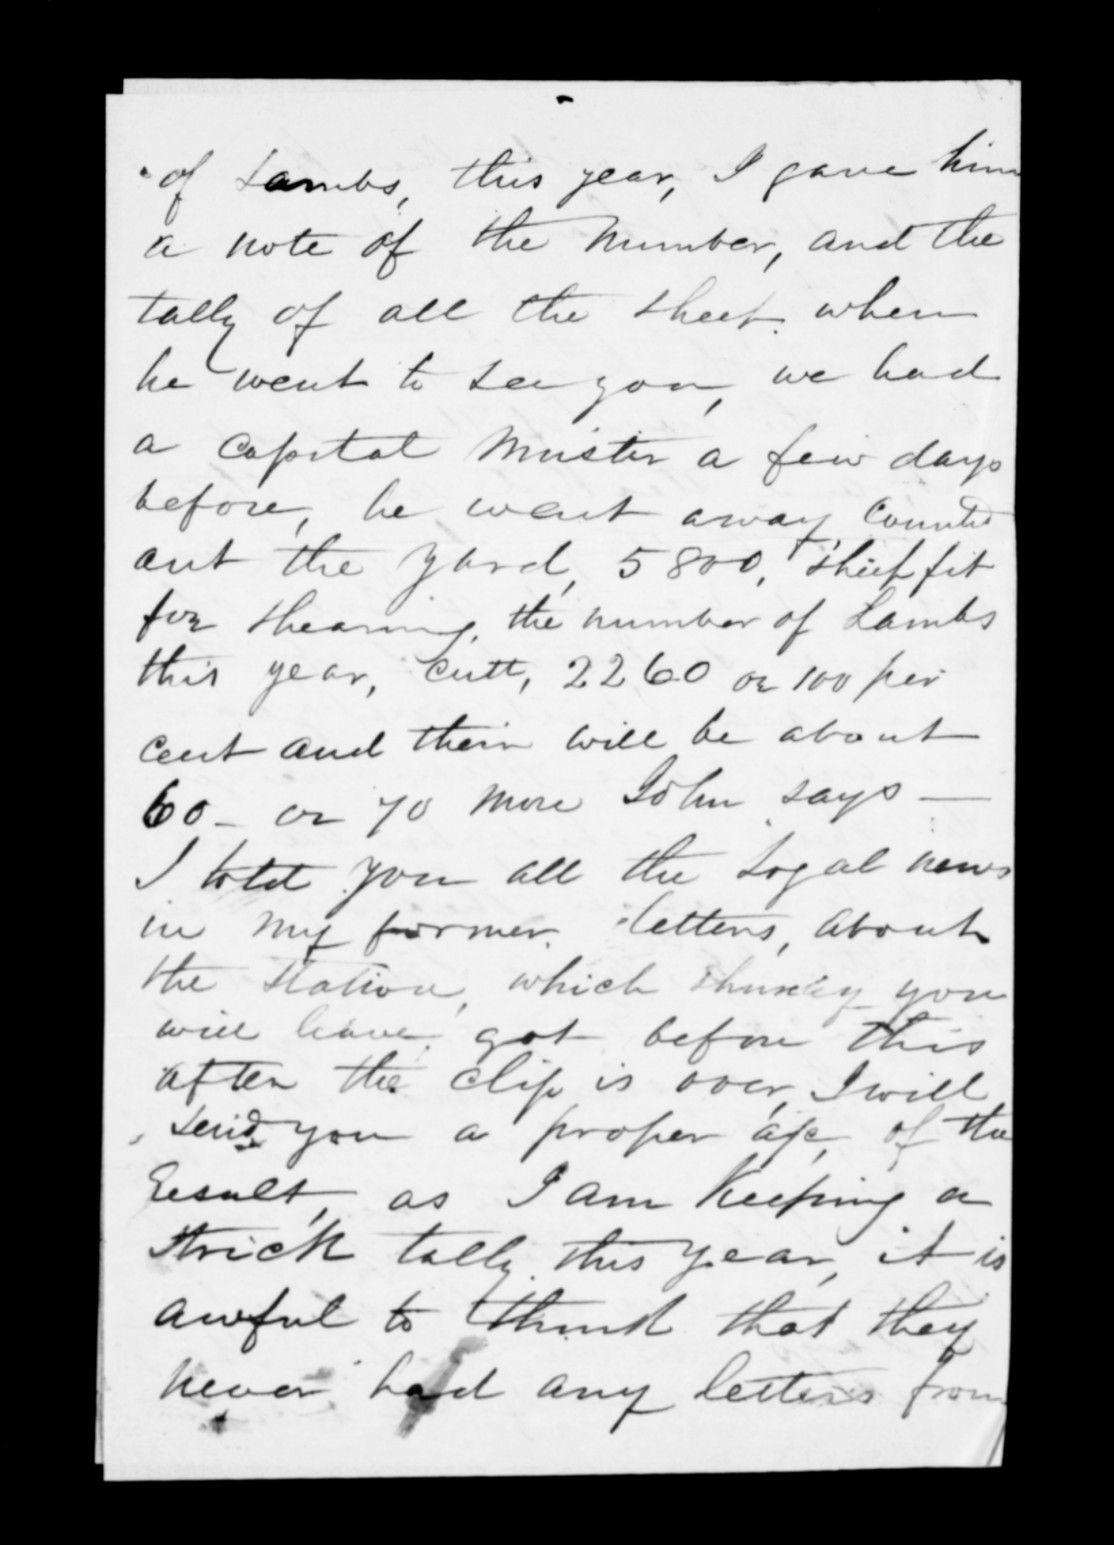 of Lambs, this year, I gave him
a note of the Number, and the
tally of all the sheep when
he went to see you, we had
a capital Muster a few days
before, he went away, counted
out the Yard, 5800, sheep fit
for shearing, the number of Lambs
this year, cutt, 2260 or 100 per
cent and their will be about
60 - or 70 more John says —
I told you all the Logal news
in my former letters, about
the station, which you
will have got before this
after the clip is over, I will
send you a proper a/c, of the
Result, as I am Keeping a
strick tally this Year, it is
awful to think that they
never had any letters from